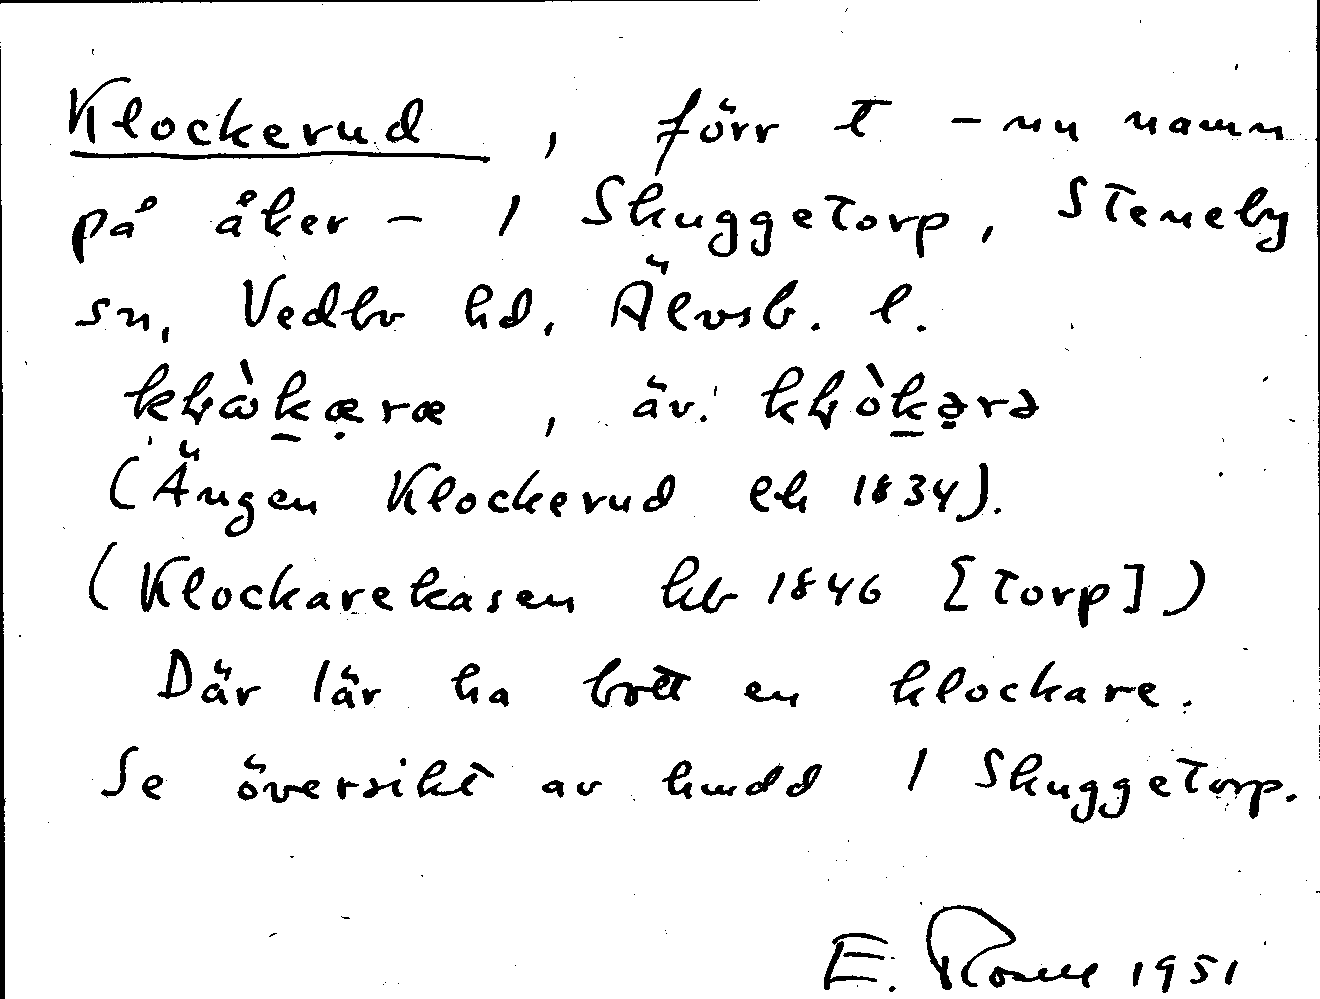 Klockerud, förr t - nu namn
på åker - / Skuggetorp, Steneby
sn, Vedbo hd, Älvsb. l.
, äv.
(Ängen Klockerud ek 1834).
(Klockarekasen hb 1846 [torp])
Där lär ha bott en klockare.
Se översikt av hmdd / Skuggetorp.
E. 1951